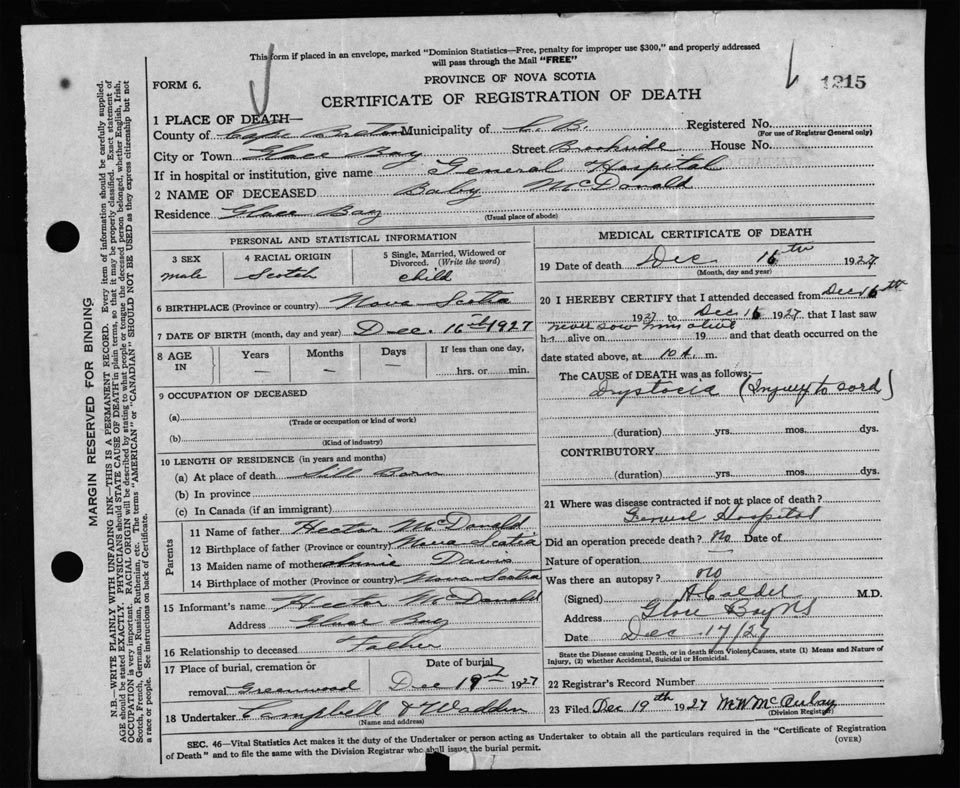 This form if placed in an envelope, marked "Dominion Statistics—Free, penalty for improper use $300," and properly addressed
will pass through the Mail "FREE"
PROVINCE OF NOVA SCOTIA
FORM 6.
1215
CERTIFICATE OF REGISTRATION OF DEATH
1 PLACE OF DEATH—
County of Cape Breton Municipality of C.B. Registered No.
(For use of Registrar General only)
City or Town Glace Bay Street Brookside House No.
If in hospital or institution, give name General Hospital
2 NAME OF DECEASED Baby McDonald
Residence Glace Bay
(Usual place of abode)
PERSONAL AND STATISTICAL INFORMATION
3 SEX 4 RACIAL ORIGIN 5 Single, Married, Widowed or
Divorced. (Write the word)
male Scotch child
6 BIRTHPLACE (Province or country) Nova Scotia
7 DATE OF BIRTH (month, day and year) Dec. 16th 1927
8 AGE IN Years Months Days If less than one day,
— — — hrs. or min.
9 OCCUPATION OF DECEASED
(a)
(Trade or occupation or kind of work)
(b)
(Kind of industry)
10 LENGTH OF RESIDENCE (in years and months)
(a) At place of death Still Born
(b) In province
(c) In Canada (if an immigrant)
Parents
11 Name of father Hector McDonald
12 Birthplace of father (Province or country) Nova Scotia
13 Maiden name of mother Annie Davis
14 Birthplace of mother (Province or country) Nova Scotia
15 Informant's name Hector McDonald
Address Glace Bay
16 Relationship to deceased Father
17 Place of burial, cremation or Date of burial
removal Greenwood Dec 19th 1927
18 Undertaker Campbell & Wadden
(Name and address)
MEDICAL CERTIFICATE OF DEATH
19 Date of death Dec 16th 1927
(Month, day and year)
20 I HEREBY CERTIFY that I attended deceased from Dec 16th
1927 to Dec 16 1927 that I last saw
never saw him alive
h alive on 19 and that death occurred on the
date stated above, at 10 A. m.
The CAUSE of DEATH was as follows:—
Dystocia (Injury to cord)
(duration) yrs. mos. dys.
CONTRIBUTORY
(duration) yrs. mos. dys.
21 Where was disease contracted if not at place of death?
General Hospital
Did an operation precede death? No Date of
Nature of operation
Was there an autopsy? no
(Signed) A Calder M.D.
Address Glace Bay NS
Date Dec 17/27
State the Disease causing Death, or in death from Violent Causes, state (1) Means and Nature of
Injury, (2) whether Accidental, Suicidal or Homicidal.
22 Registrar's Record Number
23 Filed Dec 19th 1927 M W McAulay
(Division Registrar)
SEC. 46—Vital Statistics Act makes it the duty of the Undertaker or person acting as Undertaker to obtain all the particulars required in the "Certificate of Registration
of Death" and to file the same with the Division Registrar who shall issue the burial permit.
(OVER)
MARGIN RESERVED FOR BINDING
N.B.—WRITE PLAINLY WITH UNFADING INK—THIS IS A PERMANENT RECORD. Every item of information should be carefully supplied.
AGE should be stated EXACTLY. PHYSICIANS should STATE CAUSE OF DEATH in plain terms, so that it may be properly classified. Exact statement of
OCCUPATION is very important. RACIAL ORIGIN will be described by stating to what people or tongue the deceased person belonged, whether English, Irish,
Scotch, French, German, Russian, Ruthenian, etc. The terms "AMERICAN" or "CANADIAN" SHOULD NOT BE USED as they express citizenship but not
a race or people. See instructions on back of Certificate.